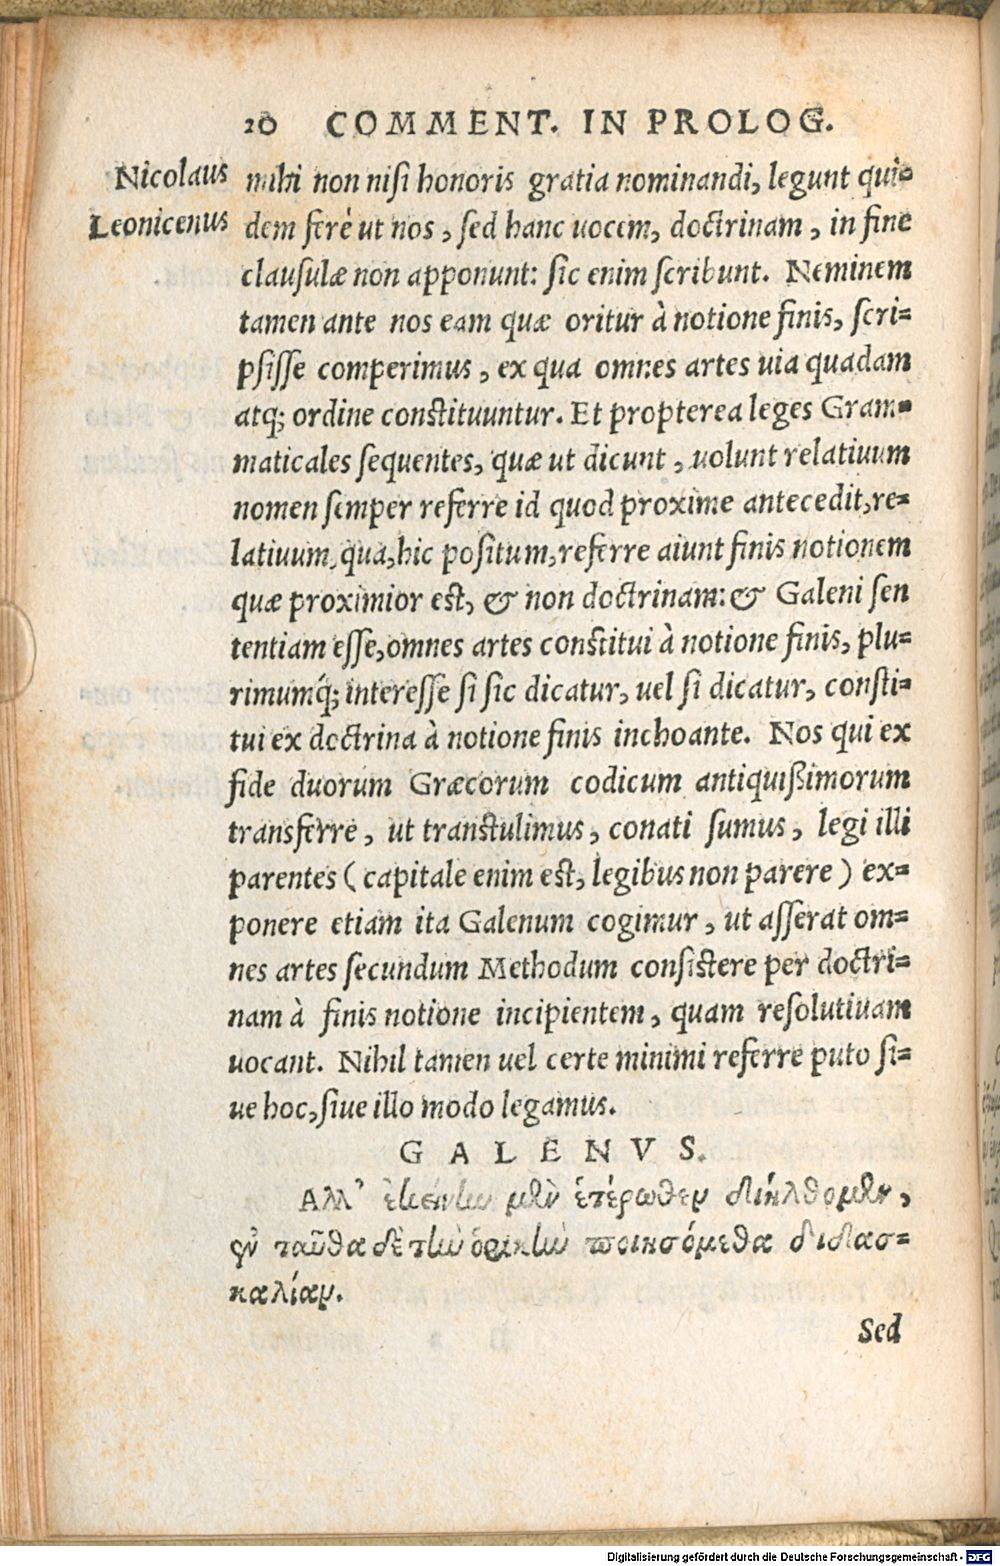 20 COMMENT. IN PROLOG.
Nicolaus
Leonicenus
mihi non nisi honoris gratia nominandi, legunt qui-
dem ferè ut nos, sed hanc uocem, doctrinam, in fine
clausulæ non apponunt: sic enim scribunt. Neminem
tamen ante nos eam quæ oritur à notione finis, scri-
psisse comperimus, ex qua omnes artes uia quadam
atq; ordine constituuntur. Et propterea leges Gram-
maticales sequentes, quæ ut dicunt, uolunt relatiuum
nomen semper referre id quod proxime antecedit, re-
latiuum, qua, hic positum, referre aiunt finis notionem
quæ proximior est, & non doctrinam: & Galeni sen
tentiam esse, omnes artes constitui à notione finis, plu-
rimumq́; interesse si sic dicatur, uel si dicatur, consti-
tui ex doctrina à notione finis inchoante. Nos qui ex
fide duorum Græcorum codicum antiquißimorum
transferre, ut transtulimus, conati sumus, legi illi
parentes (capitale enim est, legibus non parere) ex-
ponere etiam ita Galenum cogimur, ut asserat om-
nes artes secundum Methodum consistere per doctri-
nam à finis notione incipientem, quam resolutiuam
uocant. Nihil tamen uel certe minimi referre puto si-
ue hoc, siue illo modo legamus.
GALENVS.
Αλλ' ἐκείνην μὲν ἑτέρωθεν διήλθομεν,
ἐν ταῦθα δὲ τὴν ὁρικὴν ποιησόμεθα διδασ-
καλίαν.
Sed
Digitalisierung gefördert durch die Deutsche Forschungsgemeinschaft - DFG